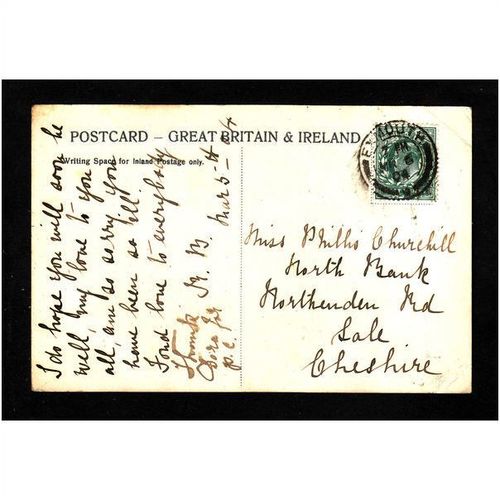 POSTCARD – GREAT BRITAIN & IRELAND
Writing Space for Inland Postage only.
I do hope you will soon be
well, my love to you
all, am so sorry you
have been so ill
Fond love to everybody
H. B. Mar 5th 04
Thank
Dora for
p.c.
EXMOUTH
Miss Phillis Churchill
North Bank
Northenden Rd
Sale
Cheshire